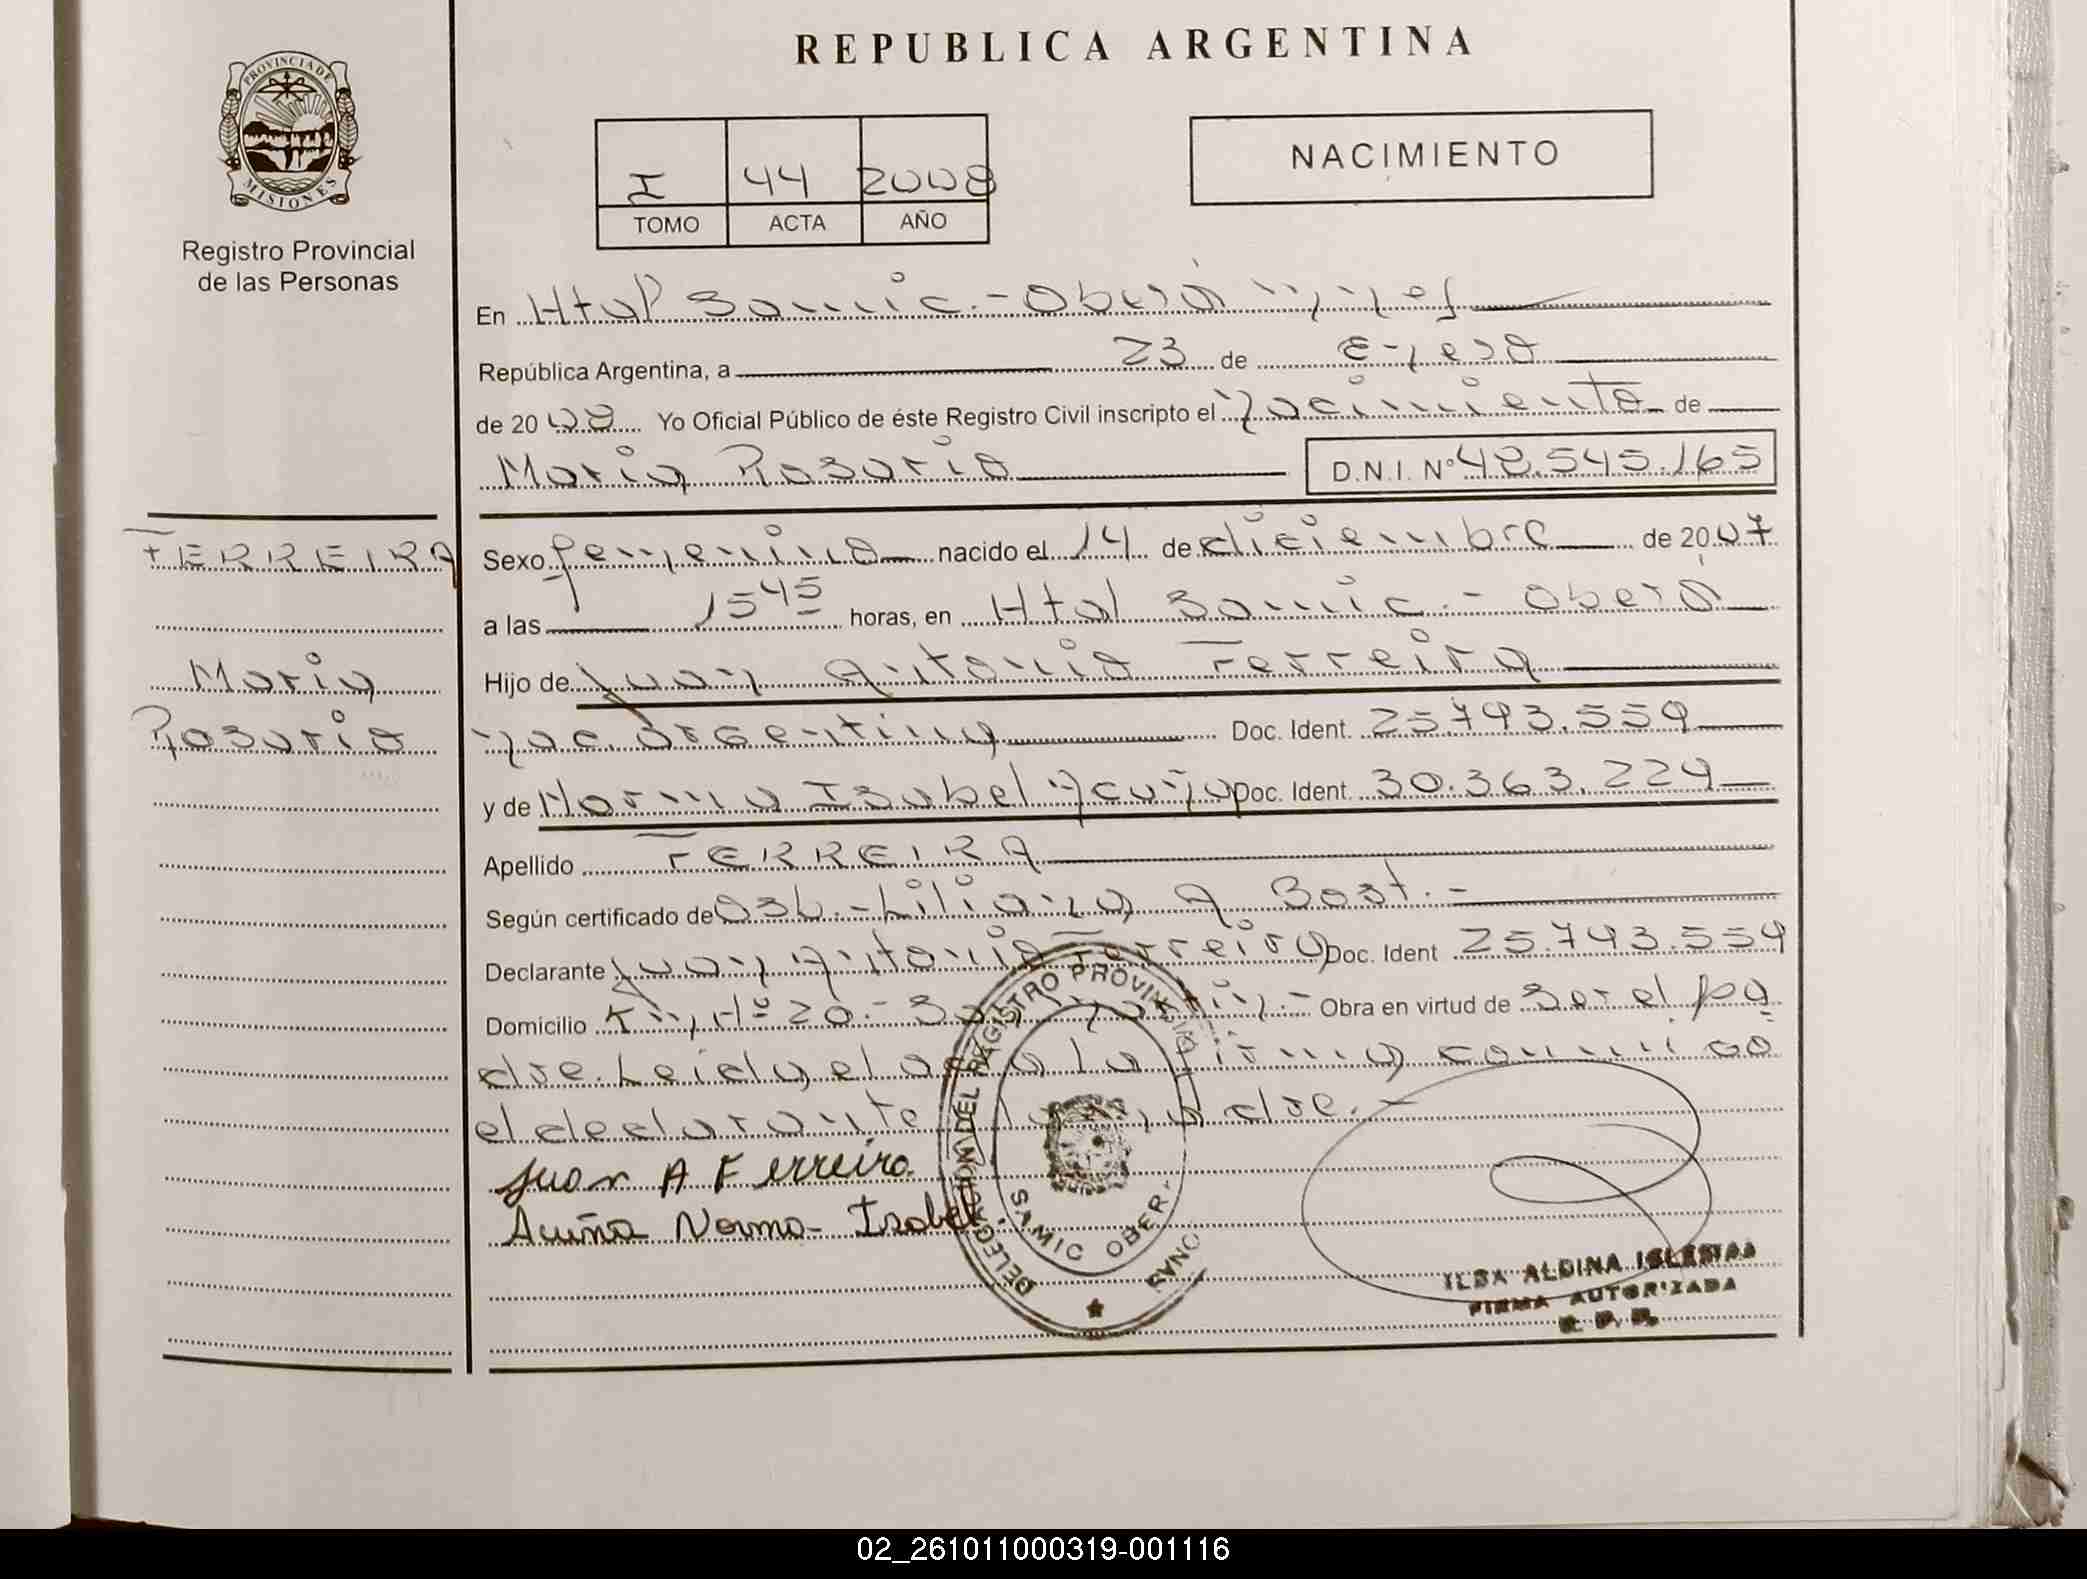 REPUBLICA ARGENTINA
PROVINCIA DE
MISIONES
Registro Provincial
de las Personas
I 44 2008
TOMO ACTA AÑO
NACIMIENTO
En Htal Samic.- Oberá
República Argentina, a 23 de Enero
de 2008 Yo Oficial Público de éste Registro Civil inscripto el nacimiento de
Maria Rosario D.N.I. N° 48.545.165
FERREIRA
Maria
Rosario
Sexo femenino nacido el 14 de diciembre de 2007
a las 15 45 horas, en Htal Samic.- Oberá
Hijo de Juan Antonio Ferreira
nac. argentina Doc. Ident. 25.743.559
y de Norma Isabel Acuña Doc. Ident. 30.363.224
Apellido FERREIRA
Según certificado de Obst.- Liliana A Bast.-
Declarante Juan Antonio Ferreira Doc. Ident 25.743.559
Domicilio Km Nº 20.- San Martin.- Obra en virtud de ser el pa
dre. Leida el acta la firma conmigo
el declarante la madre.-
Juan A Ferreira
Acuña Norma Isabel.
DELEGACION DEL REGISTRO PROVINCIAL
SAMIC OBERA
ILSA ALDINA IGLESIAS
FIRMA AUTORIZADA
R. P. P.
02_261011000319-001116